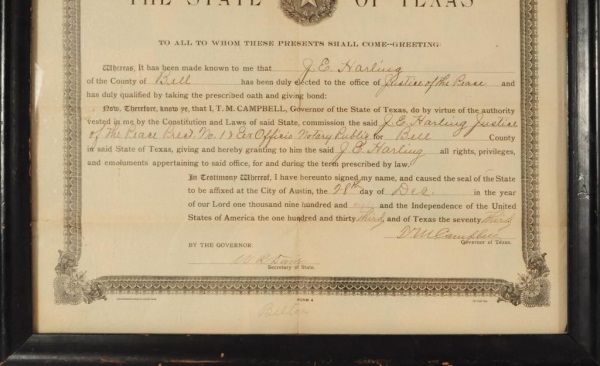 THE STATE OF TEXAS
TO ALL TO WHOM THESE PRESENTS SHALL COME—GREETING:
Whereas, It has been made known to me that J. E. Harling
of the County of Bell has been duly elected to the office of Justice of the Peace and
has duly qualified by taking the prescribed oath and giving bond:
Now, Therefore, know ye, that I, T. M. CAMPBELL, Governor of the State of Texas, do by virtue of the authority
vested in me by the Constitution and Laws of said State, commission the said J. E. Harling, Justice
of the Peace Prect. No. 1 & Ex Officio Notary Public for Bell County
in said State of Texas, giving and hereby granting to him the said J. E. Harling all rights, privileges,
and emoluments appertaining to said office, for and during the term prescribed by law.
In Testimony Whereof, I have hereunto signed my name, and caused the seal of the State
to be affixed at the City of Austin, the 28th day of Dec. in the year
of our Lord one thousand nine hundred and and the Independence of the United
States of America the one hundred and thirty third and of Texas the seventy third
T M Campbell
Governor of Texas.
BY THE GOVERNOR
Secretary of State.
FORM A